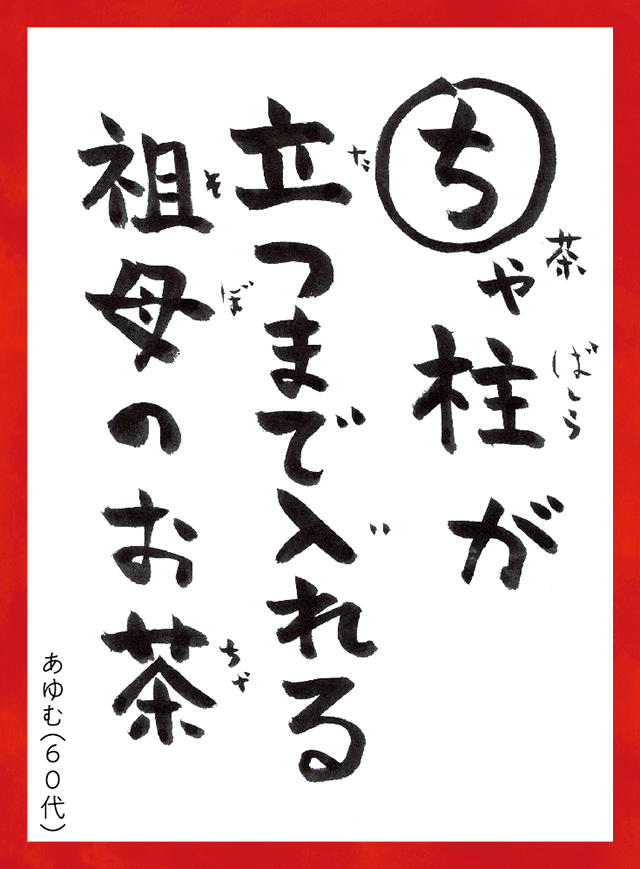 ちや柱が
茶 ばしら
立つまで入れる
た
祖母のお茶
そ ぼ ちゃ
あゆむ（60代）